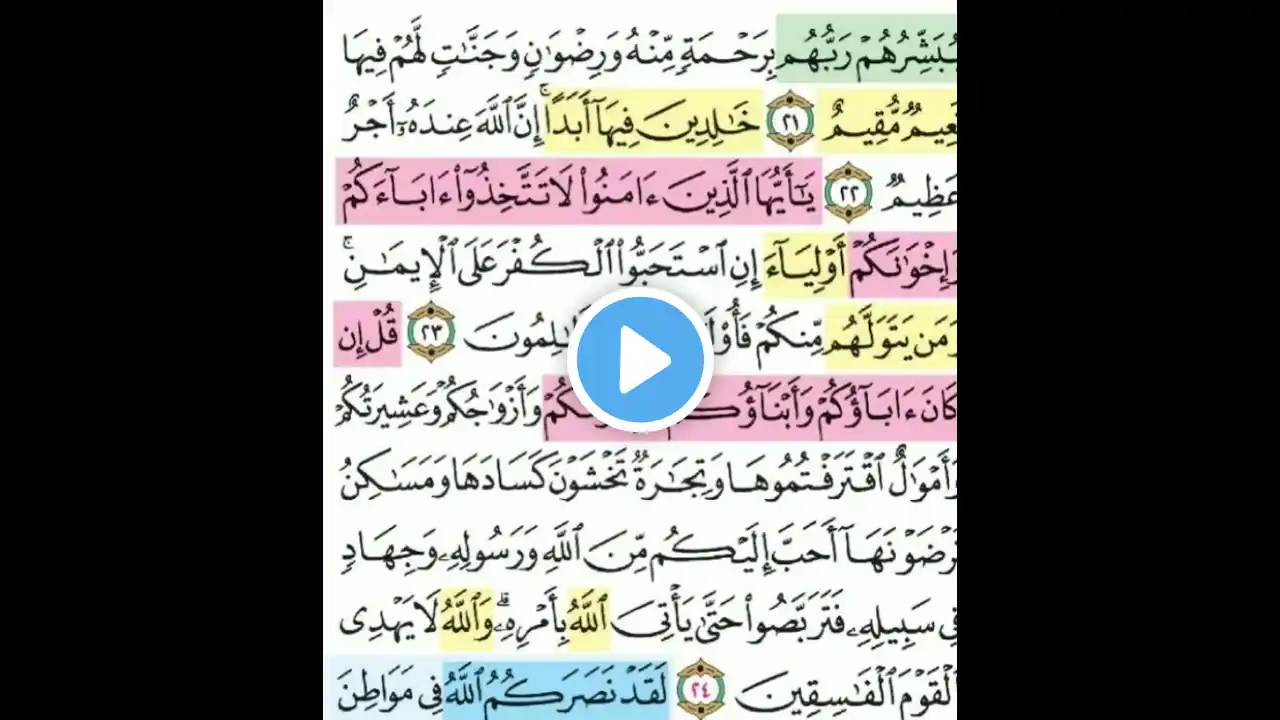 يُبَشِّرُهُمْ رَبُّهُم بِرَحْمَةٍ مِّنْهُ وَرِضْوَٰنٍ وَجَنَّٰتٍ لَّهُمْ فِيهَا
نَعِيمٌ مُّقِيمٌ ٢١ خَٰلِدِينَ فِيهَآ أَبَدًا ۚ إِنَّ ٱللَّهَ عِندَهُۥٓ أَجْرٌ
عَظِيمٌ ٢٢ يَٰٓأَيُّهَا ٱلَّذِينَ ءَامَنُوا۟ لَا تَتَّخِذُوٓا۟ ءَابَآءَكُمْ
وَإِخْوَٰنَكُمْ أَوْلِيَآءَ إِنِ ٱسْتَحَبُّوا۟ ٱلْكُفْرَ عَلَى ٱلْإِيمَٰنِ ۚ
وَمَن يَتَوَلَّهُم مِّنكُمْ ٢٣ قُلْ إِن
كَانَ ءَابَآؤُكُمْ وَأَبْنَآؤُكُمْ وَأَزْوَٰجُكُمْ وَعَشِيرَتُكُمْ
وَأَمْوَٰلٌ ٱقْتَرَفْتُمُوهَا وَتِجَٰرَةٌ تَخْشَوْنَ كَسَادَهَا وَمَسَٰكِنُ
تَرْضَوْنَهَآ أَحَبَّ إِلَيْكُم مِّنَ ٱللَّهِ وَرَسُولِهِۦ وَجِهَادٍ
فِى سَبِيلِهِۦ فَتَرَبَّصُوا۟ حَتَّىٰ يَأْتِىَ ٱللَّهُ بِأَمْرِهِۦ ۗ وَٱللَّهُ لَا يَهْدِى
ٱلْقَوْمَ ٱلْفَٰسِقِينَ ٢٤ لَقَدْ نَصَرَكُمُ ٱللَّهُ فِى مَوَاطِنَ